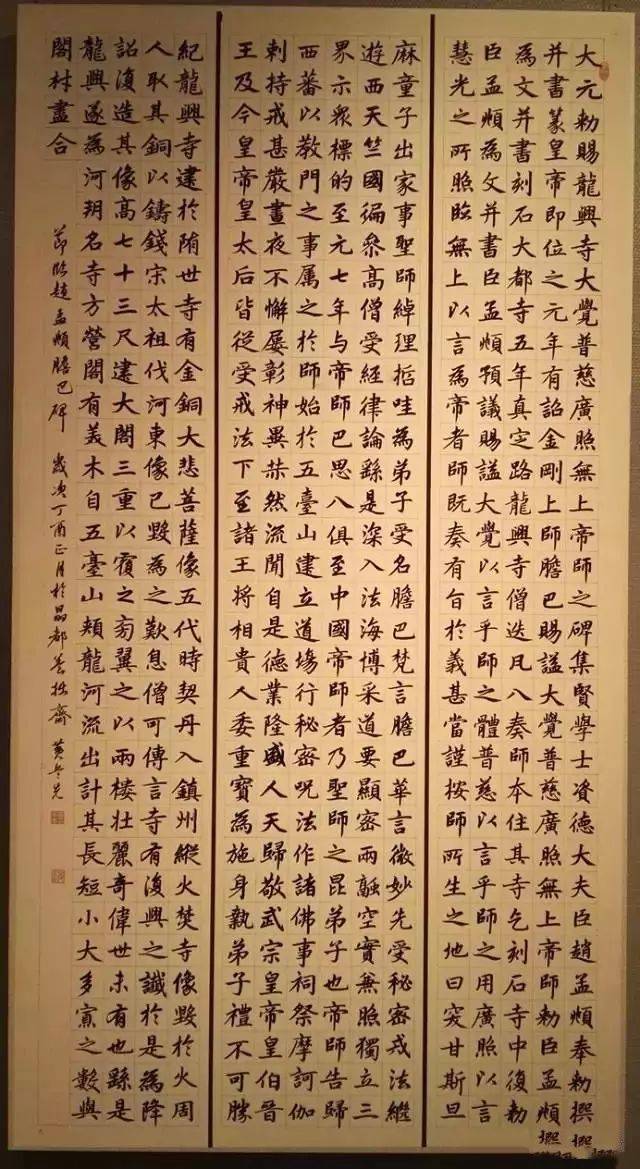 大元勅賜龍興寺大覺普慈廣照無上帝師之碑集賢學士資德大夫臣趙孟頫奉勅撰
并書篆皇帝即位之元年有詔金剛上師膽巴賜謚大覺普慈廣照無上帝師勅臣孟頫
為文并書刻石大都寺五年真定路龍興寺僧迭凡八奏師本住其寺乞刻石寺中復勅
臣孟頫為文并書臣孟頫預議賜謚大覺以言乎師之體普慈以言乎師之用廣照以言
慧光之所照臨無上以言為帝者師既奏有旨於義甚當謹按師所生之地曰突甘斯旦
麻童子出家事聖師綽理哲哇為弟子受名膽巴梵言膽巴華言微妙先受秘密戒法繼
遊西天竺國徧參高僧受經律論繇是深入法海博采道要顯密兩融空實兼照獨立三
界示眾標的至元七年与帝師巴思八俱至中國帝師者乃聖師之昆弟子也帝師告歸
西蕃以教門之事属之於師始於五臺山建立道場行秘密呪法作諸佛事祠祭摩訶伽
剌持戒甚嚴晝夜不懈屢彰神異赫然流聞自是德業隆盛人天歸敬武宗皇帝皇伯晉
王及今皇帝皇太后皆從受戒法下至諸王將相貴人委重寶為施身執弟子禮不可勝
紀龍興寺建於隋世寺有金銅大悲菩薩像五代時契丹入鎮州縱火焚寺像毀於火周
人取其銅以鑄錢宋太祖伐河東像已毀為之歎息僧可傳言寺有復興之讖於是為降
詔復造其像高七十三尺建大閣三重以覆之旁翼之以兩樓壯麗奇偉世未有也繇是
龍興遂為河玥名寺方營閣有美木自五臺山頰龍河流出計其長短小大多寡之數與
閣材盡合
節臨趙孟頫膽巴碑 歲次丁酉正月於晶都養拙齋 黃